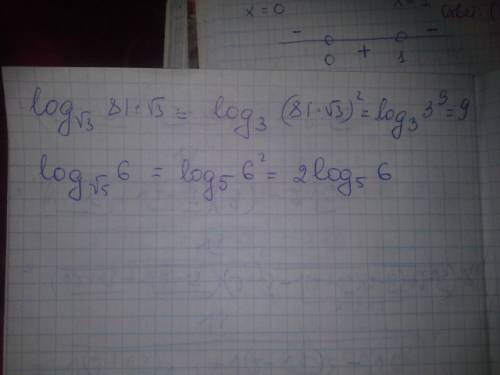 x = 0
− + −
0 1
log_{√3} 81·√3 = log_3 (81·√3)^2 = log_3 3^9 = 9
log_{√5} 6 = log_5 6^2 = 2log_5 6